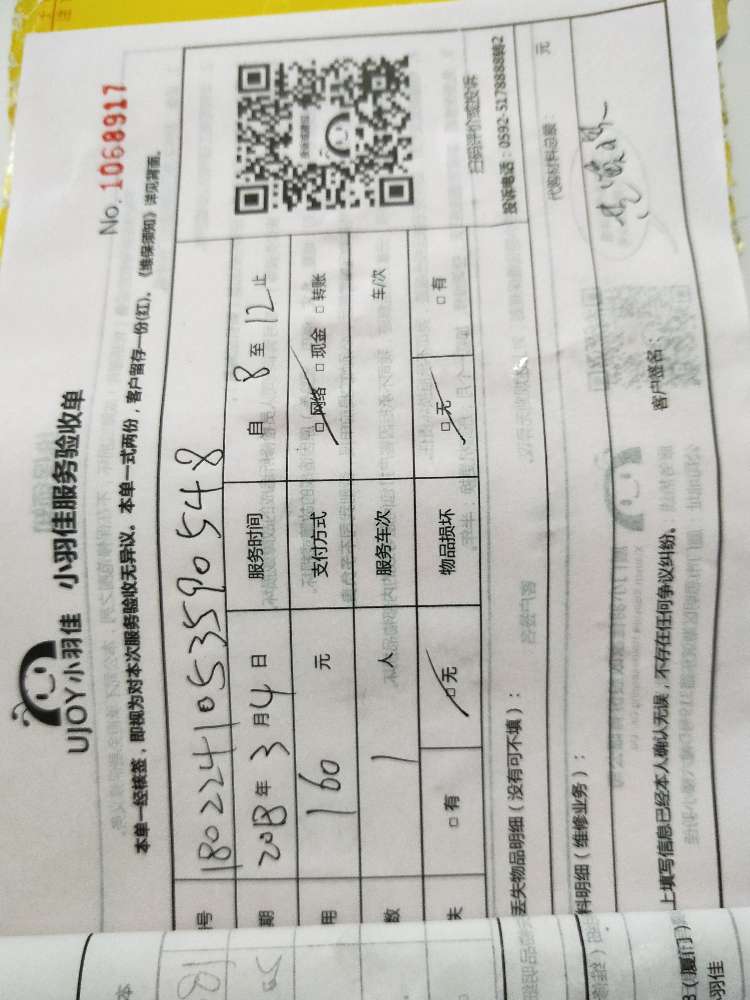 UJOY小羽佳 小羽佳服务验收单
No. 1068917
本单一经核签，即视为对本次服务验收无异议。本单一式两份，客户留存一份(红)。《维保须知》详见背面。
号 180224105359 0548
期 2018年3月4日 服务时间 自 8 至 12 止
用 160 元 支付方式 □网络 □现金 □转账
数 1 人 服务车次 车/次
失 □有 □无 物品损坏 □无 □有
扫码评价或投诉
投诉电话：0592-5178888转2
丢失物品明细（没有可不填）：
料明细（维修业务）： 代客材料总额： 元
上填写信息已经本人确认无误，不存在任何争议纠纷。 客户签名：
（厦门）
羽佳
本